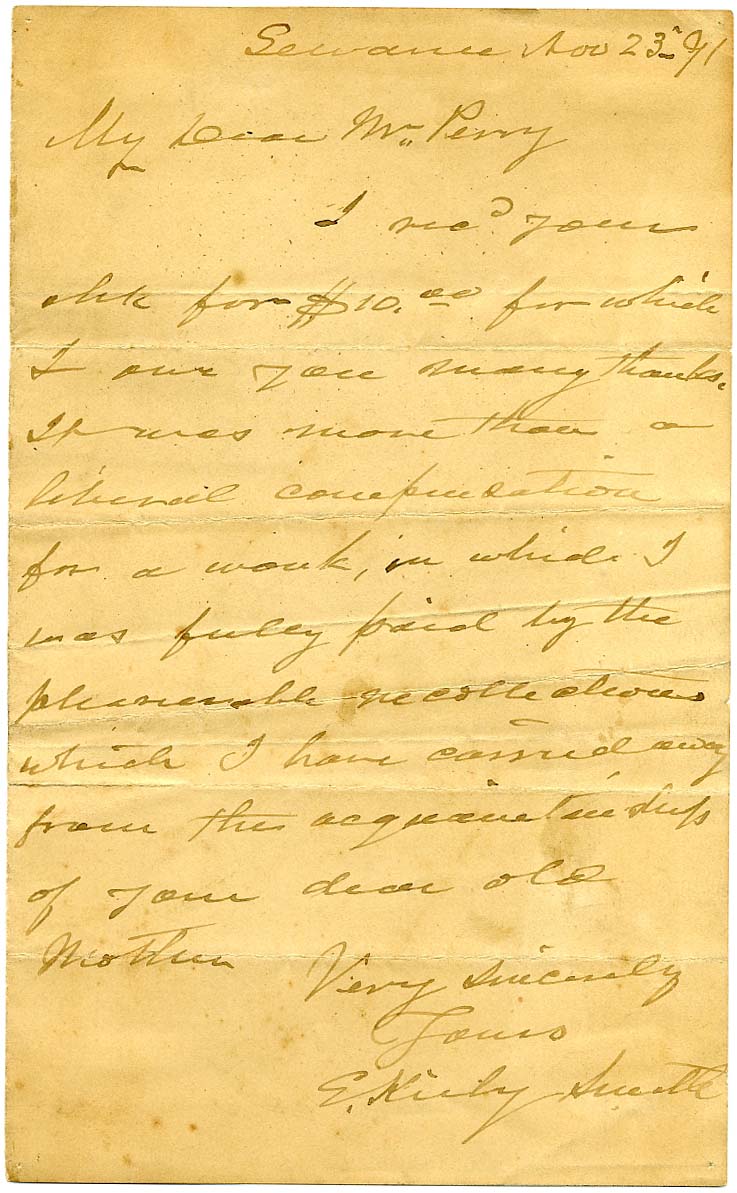 Sewanee Nov 23ʳ 91
My Dear Mr. Perry
I recd your
chk for $10.00 for which
I owe you many thanks.
It was more than a
liberal compensation
for a work, in which I
was fully paid by the
pleasurable recollections
which I have carried away
from the acquaintanceship
of your dear old
Mother
Very Sincerely
Yours
E. Kirby Smith